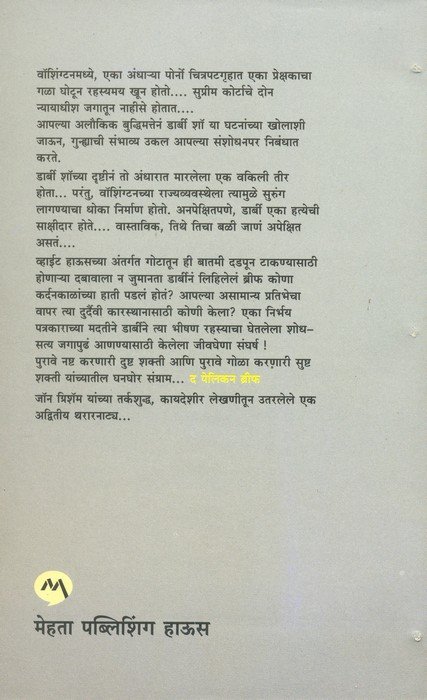 वॉशिंग्टनमध्ये, एका अंधाऱ्या पोर्नो चित्रपटगृहात एका प्रेक्षकाचा
गळा घोटून रहस्यमय खून होतो.... सुप्रीम कोर्टाचे दोन
न्यायाधीश जगातून नाहीसे होतात....
आपल्या अलौकिक बुद्धिमत्तेनं डार्बी शॉ या घटनांच्या खोलाशी
जाऊन, गुन्ह्याची संभाव्य उकल आपल्या संशोधनपर निबंधात
करते.
डार्बी शॉच्या दृष्टीनं तो अंधारात मारलेला एक वकिली तीर
होता... परंतु, वॉशिंग्टनच्या राज्यव्यवस्थेला त्यामुळे सुरुंग
लागण्याचा धोका निर्माण होतो. अनपेक्षितपणे, डार्बी एका हत्येची
साक्षीदार होते.... वास्तविक, तिथे तिचा बळी जाणं अपेक्षित
असतं....
व्हाईट हाऊसच्या अंतर्गत गोटातून ही बातमी दडपून टाकण्यासाठी
होणाऱ्या दबावाला न जुमानता डार्बीनं लिहिलेलं ब्रीफ कोणा
कर्दनकाळांच्या हाती पडलं होतं? आपल्या असामान्य प्रतिभेचा
वापर त्या दुर्दैवी कारस्थानासाठी कोणी केला? एका निर्भय
पत्रकाराच्या मदतीने डार्बीने त्या भीषण रहस्याचा घेतलेला शोध–
सत्य जगापुढं आणण्यासाठी केलेला जीवघेणा संघर्ष !
पुरावे नष्ट करणारी दुष्ट शक्ती आणि पुरावे गोळा करणारी सुष्ट
शक्ती यांच्यातील घनघोर संग्राम... द पेलिकन ब्रीफ
जॉन ग्रिशॅम यांच्या तर्कशुद्ध, कायदेशीर लेखणीतून उतरलेले एक
अद्वितीय थरारनाट्य...
मेहता पब्लिशिंग हाऊस